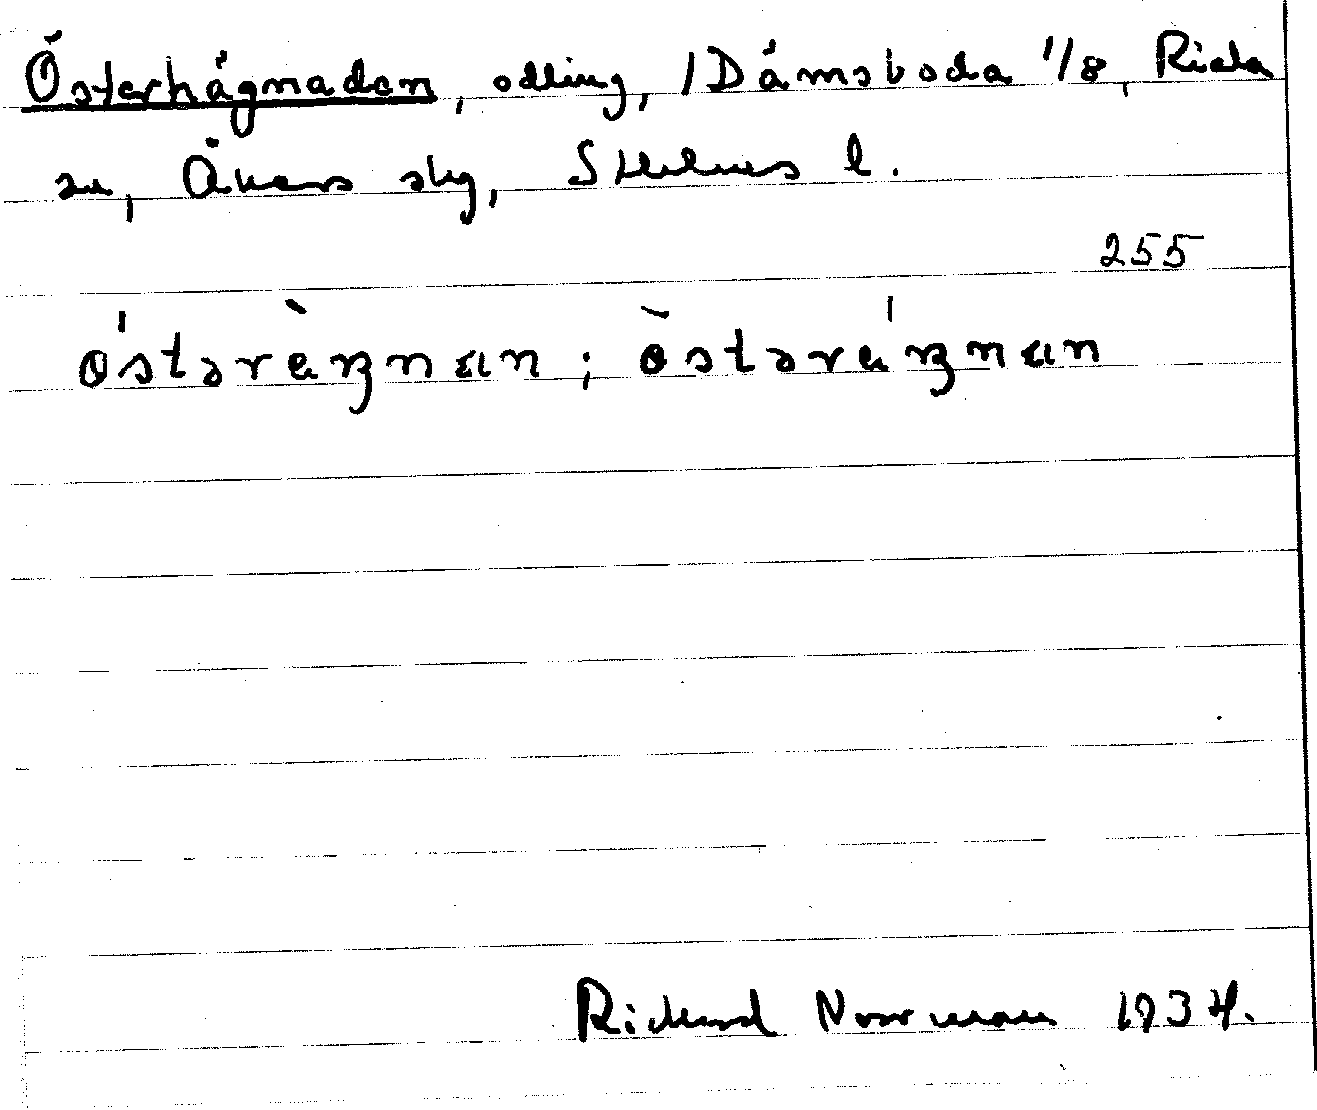 Österhágnaden, odling, /Dámsboda 1/8, Riala
sn, Åkers slg, Sthlms l.
255
östəraŋnan; östəraŋnan
Richard Norrman 1934.